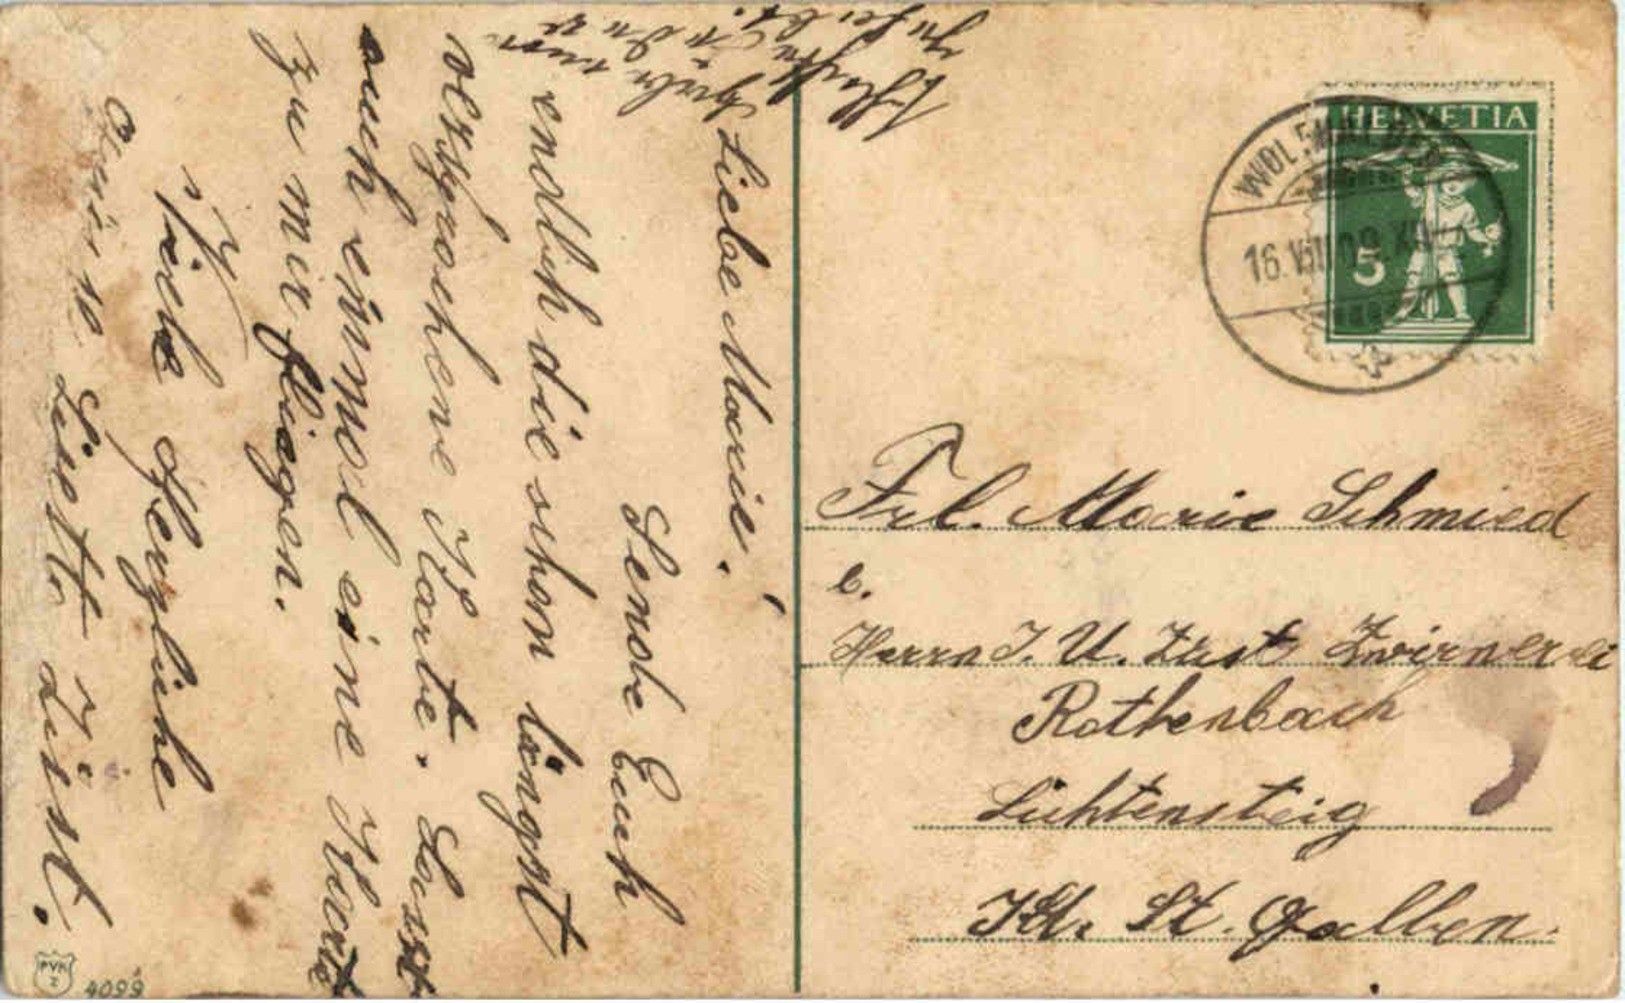 Liebe Marie!
Sende Euch
endlich die schon längst
versprochene Karte. Lasst
auch einmal eine Karte
zu mir fliegen.
Viele Herzliche
Grüsse Lisette Züst.
HELVETIA
5
WOLFHALDEN
16.VIII.09.XII
Frl. Marie Schmied
b.
Herrn J. U. Züst Zwirnerei
Rothenbach
Lichtensteig
Kt. St. Gallen.
PVK
Z
4099